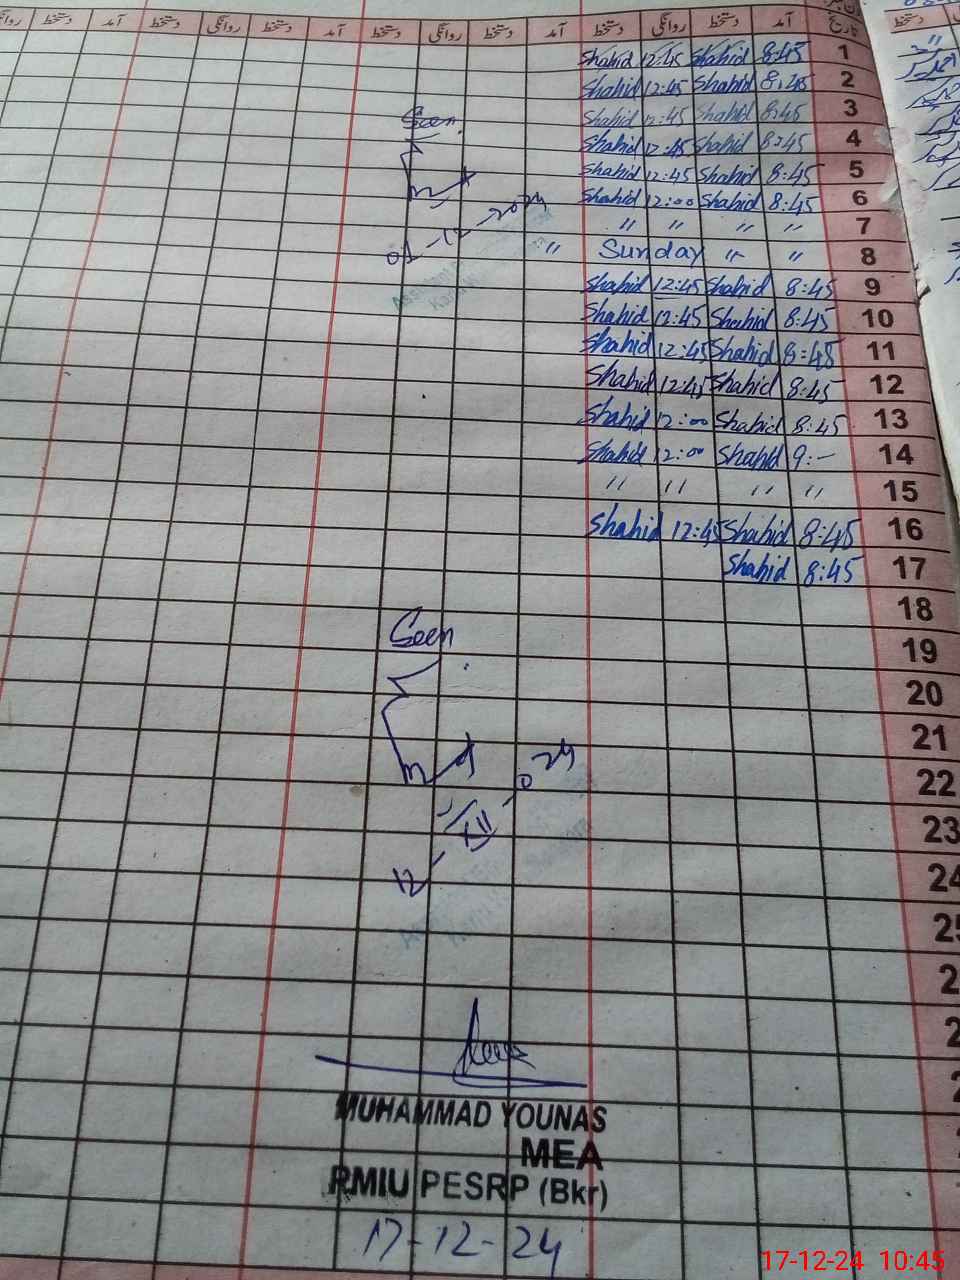 تاریخ آمد دستخط روانگی دستخط آمد دستخط روانگی دستخط آمد دستخط روانگی دستخط آمد دستخط روانگی
Shahid 12:45 Shahid 8:45 1
Shahid 12:45 Shahid 8:45 2
Shahid 12:45 Shahid 8:45 3
Shahid 12:45 Shahid 8:45 4
Shahid 12:45 Shahid 8:45 5
Shahid 12:00 Shahid 8:45 6
" " " " 7
" Sunday " " 8
Shahid 12:45 Shahid 8:45 9
Shahid 12:45 Shahid 8:45 10
Shahid 12:45 Shahid 8:45 11
Shahid 12:45 Shahid 8:45 12
Shahid 12:00 Shahid 8:45 13
Shahid 12:00 Shahid 9:- 14
" " " " 15
Shahid 12:45 Shahid 8:45 16
Shahid 8:45 17
18
19
20
21
22
23
24
25
Seen
01-12-2024
Seen
MUHAMMAD YOUNAS
MEA
RMIU PESRP (Bkr)
17-12-24
17-12-24 10:45